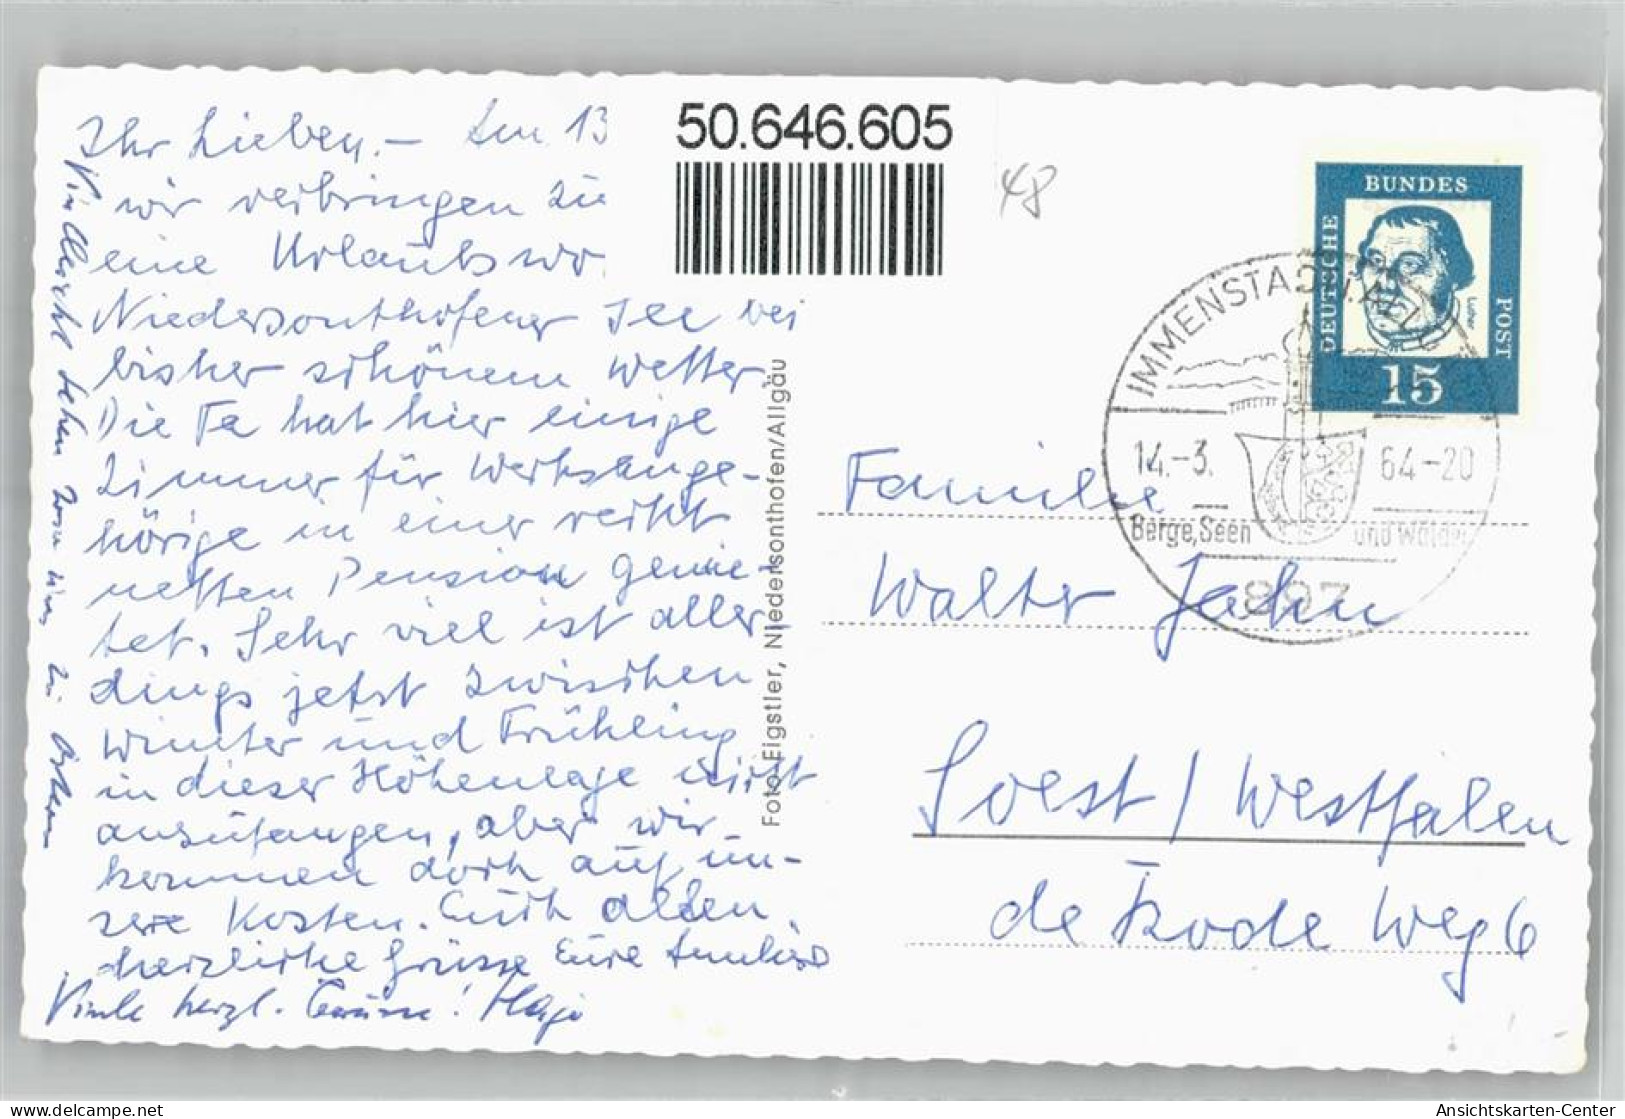 Ihr Lieben. – den 13
wir verbringen zu
eine Urlaubswo
Niedersonthofener See bei
bisher schönem Wetter.
Die Fa hat hier einige
Zimmer für Werksange-
hörige in einer recht
netten Pension gemie-
tet. Sehr viel ist aller-
dings jetzt zwischen
Winter und Frühling
in dieser Höhenlage nicht
anzufangen, aber wir
kommen doch auf un-
sere Kosten. Euch allen
herzliche Grüsse Eure
herzl. Grüsse! Hajo
sehen wir zu Ostern
Foto-Eigstler, Niedersonthofen/Allgäu
50.646.605
48
DEUTSCHE BUNDES POST
Luther
15
IMMENSTADT
14.-3. 64-20
Berge, Seen und Wälder
897
Familie
Walter Jahn
Soest / Westfalen
de Rode Weg 6
Ansichtskarten-Center